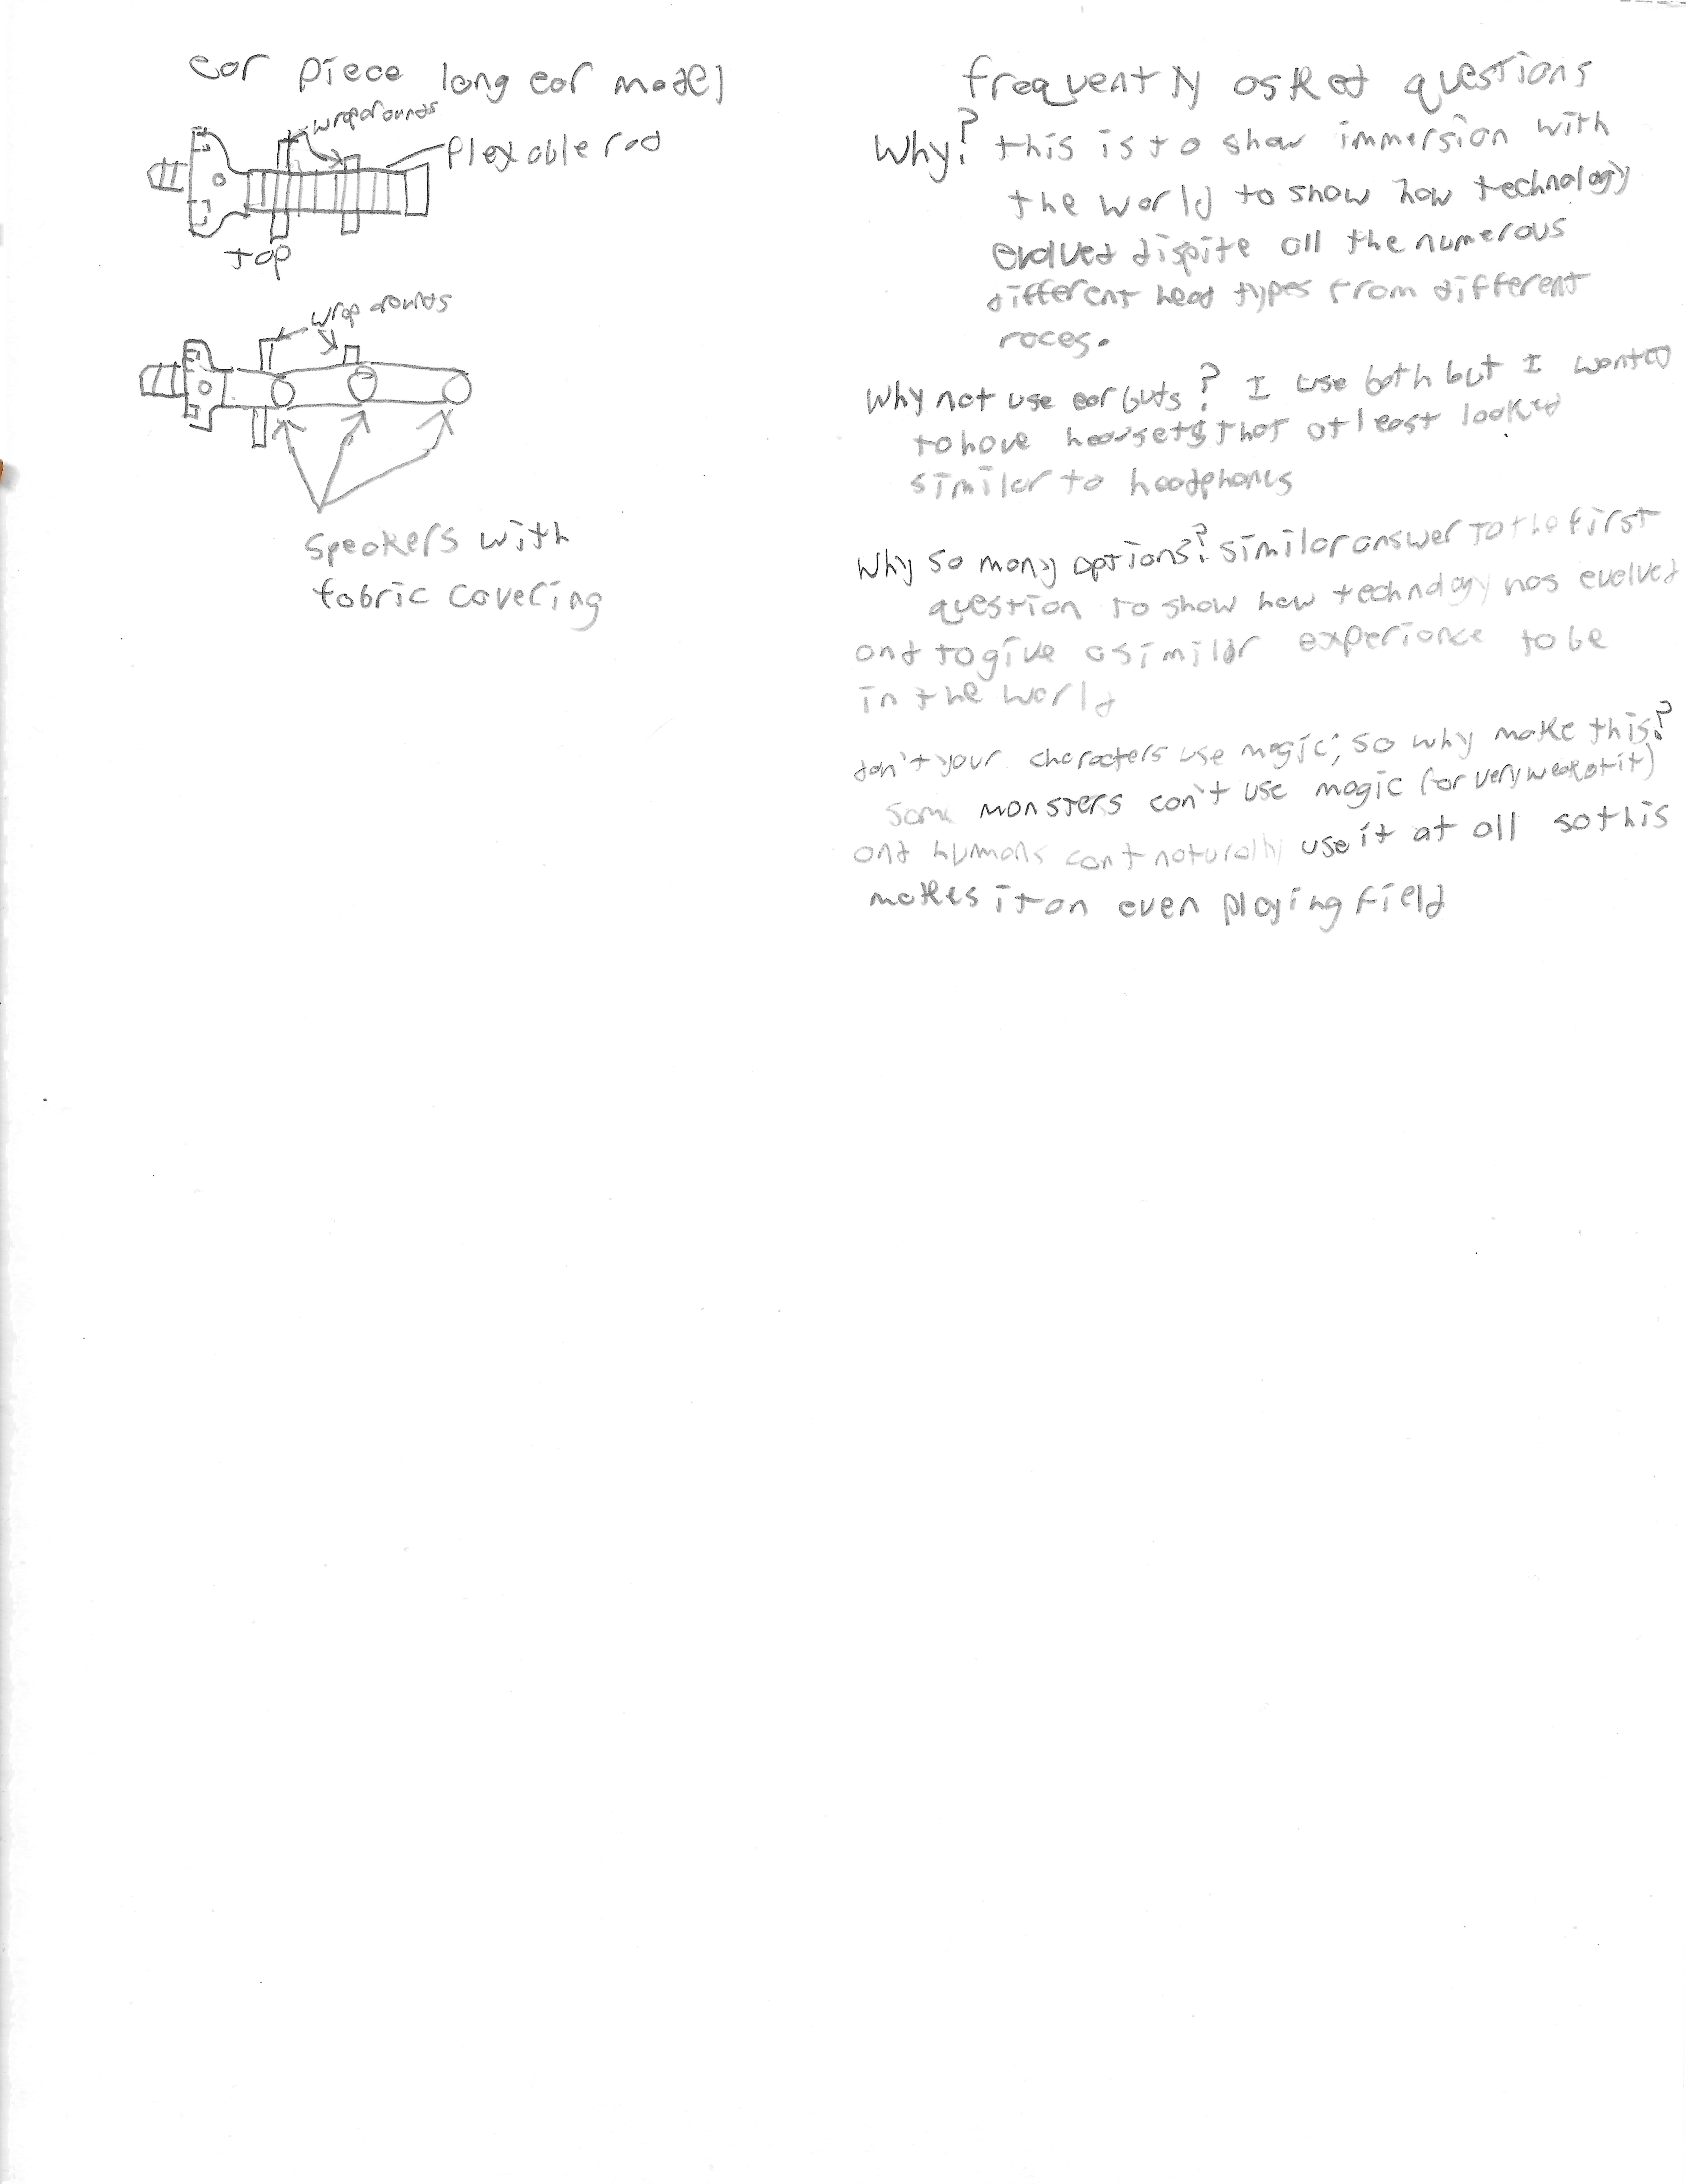 ear piece long ear model
wraparounds
plexable rod
top
wrap arounds
speakers with
fabric covering
frequently asked questions
Why? this is to show immersion with
the world to show how technology
evolved dispite all the numerous
different head types from different
races.
Why not use earbuds? I use both but I wanted
to have headsets that at least looked
similar to headphones
Why so many options? similar answer to the first
question to show how technology has evolved
and to give a similar experiance to be
in the world
don't your characters use magic; so why make this?
some monsters can't use magic (or very weak at it)
and humans can't naturally use it at all so this
makes it an even playing field